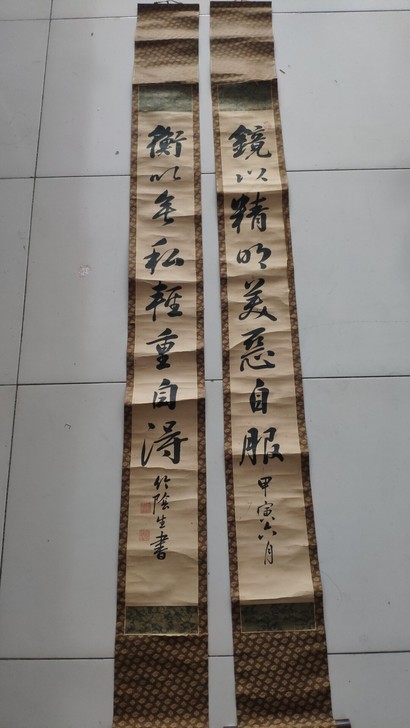 鏡以精明美惡自服
甲寅六月
衡以無私輕重自得
竹陰生書